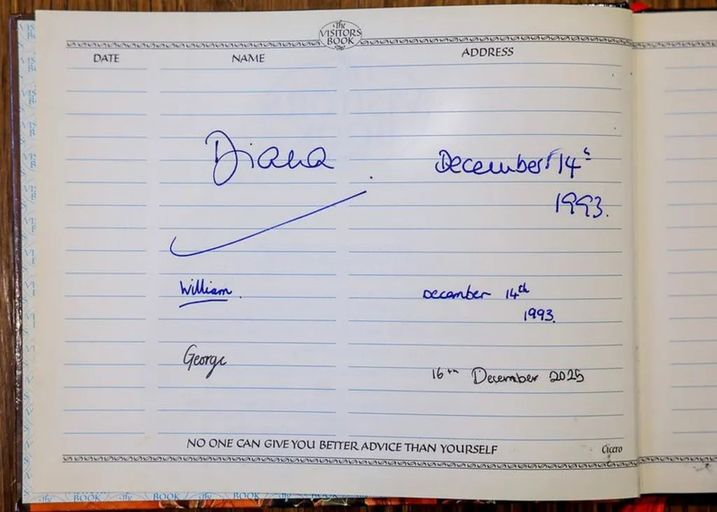 The
VISITORS
BOOK
DATE NAME ADDRESS
Diana December 14th
1993.
William. December 14th
1993.
George 16th December 2025
NO ONE CAN GIVE YOU BETTER ADVICE THAN YOURSELF Cicero
The BOOK The BOOK The BOOK The